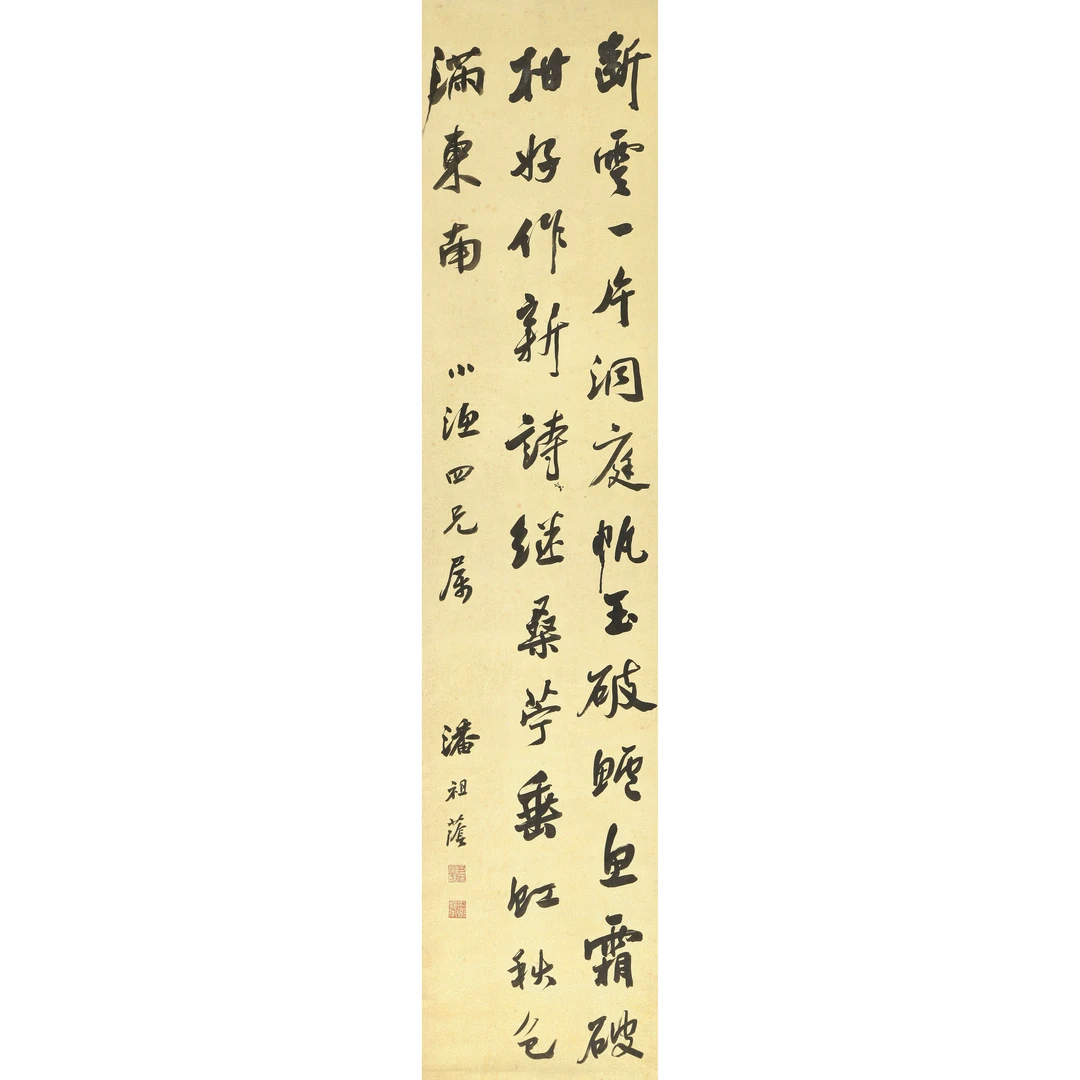 斷雲一片洞庭帆玉破鱸魚霜破
柑好作新詩继桑苧垂虹秋色
滿東南 小漁四兄属 潘祖蔭